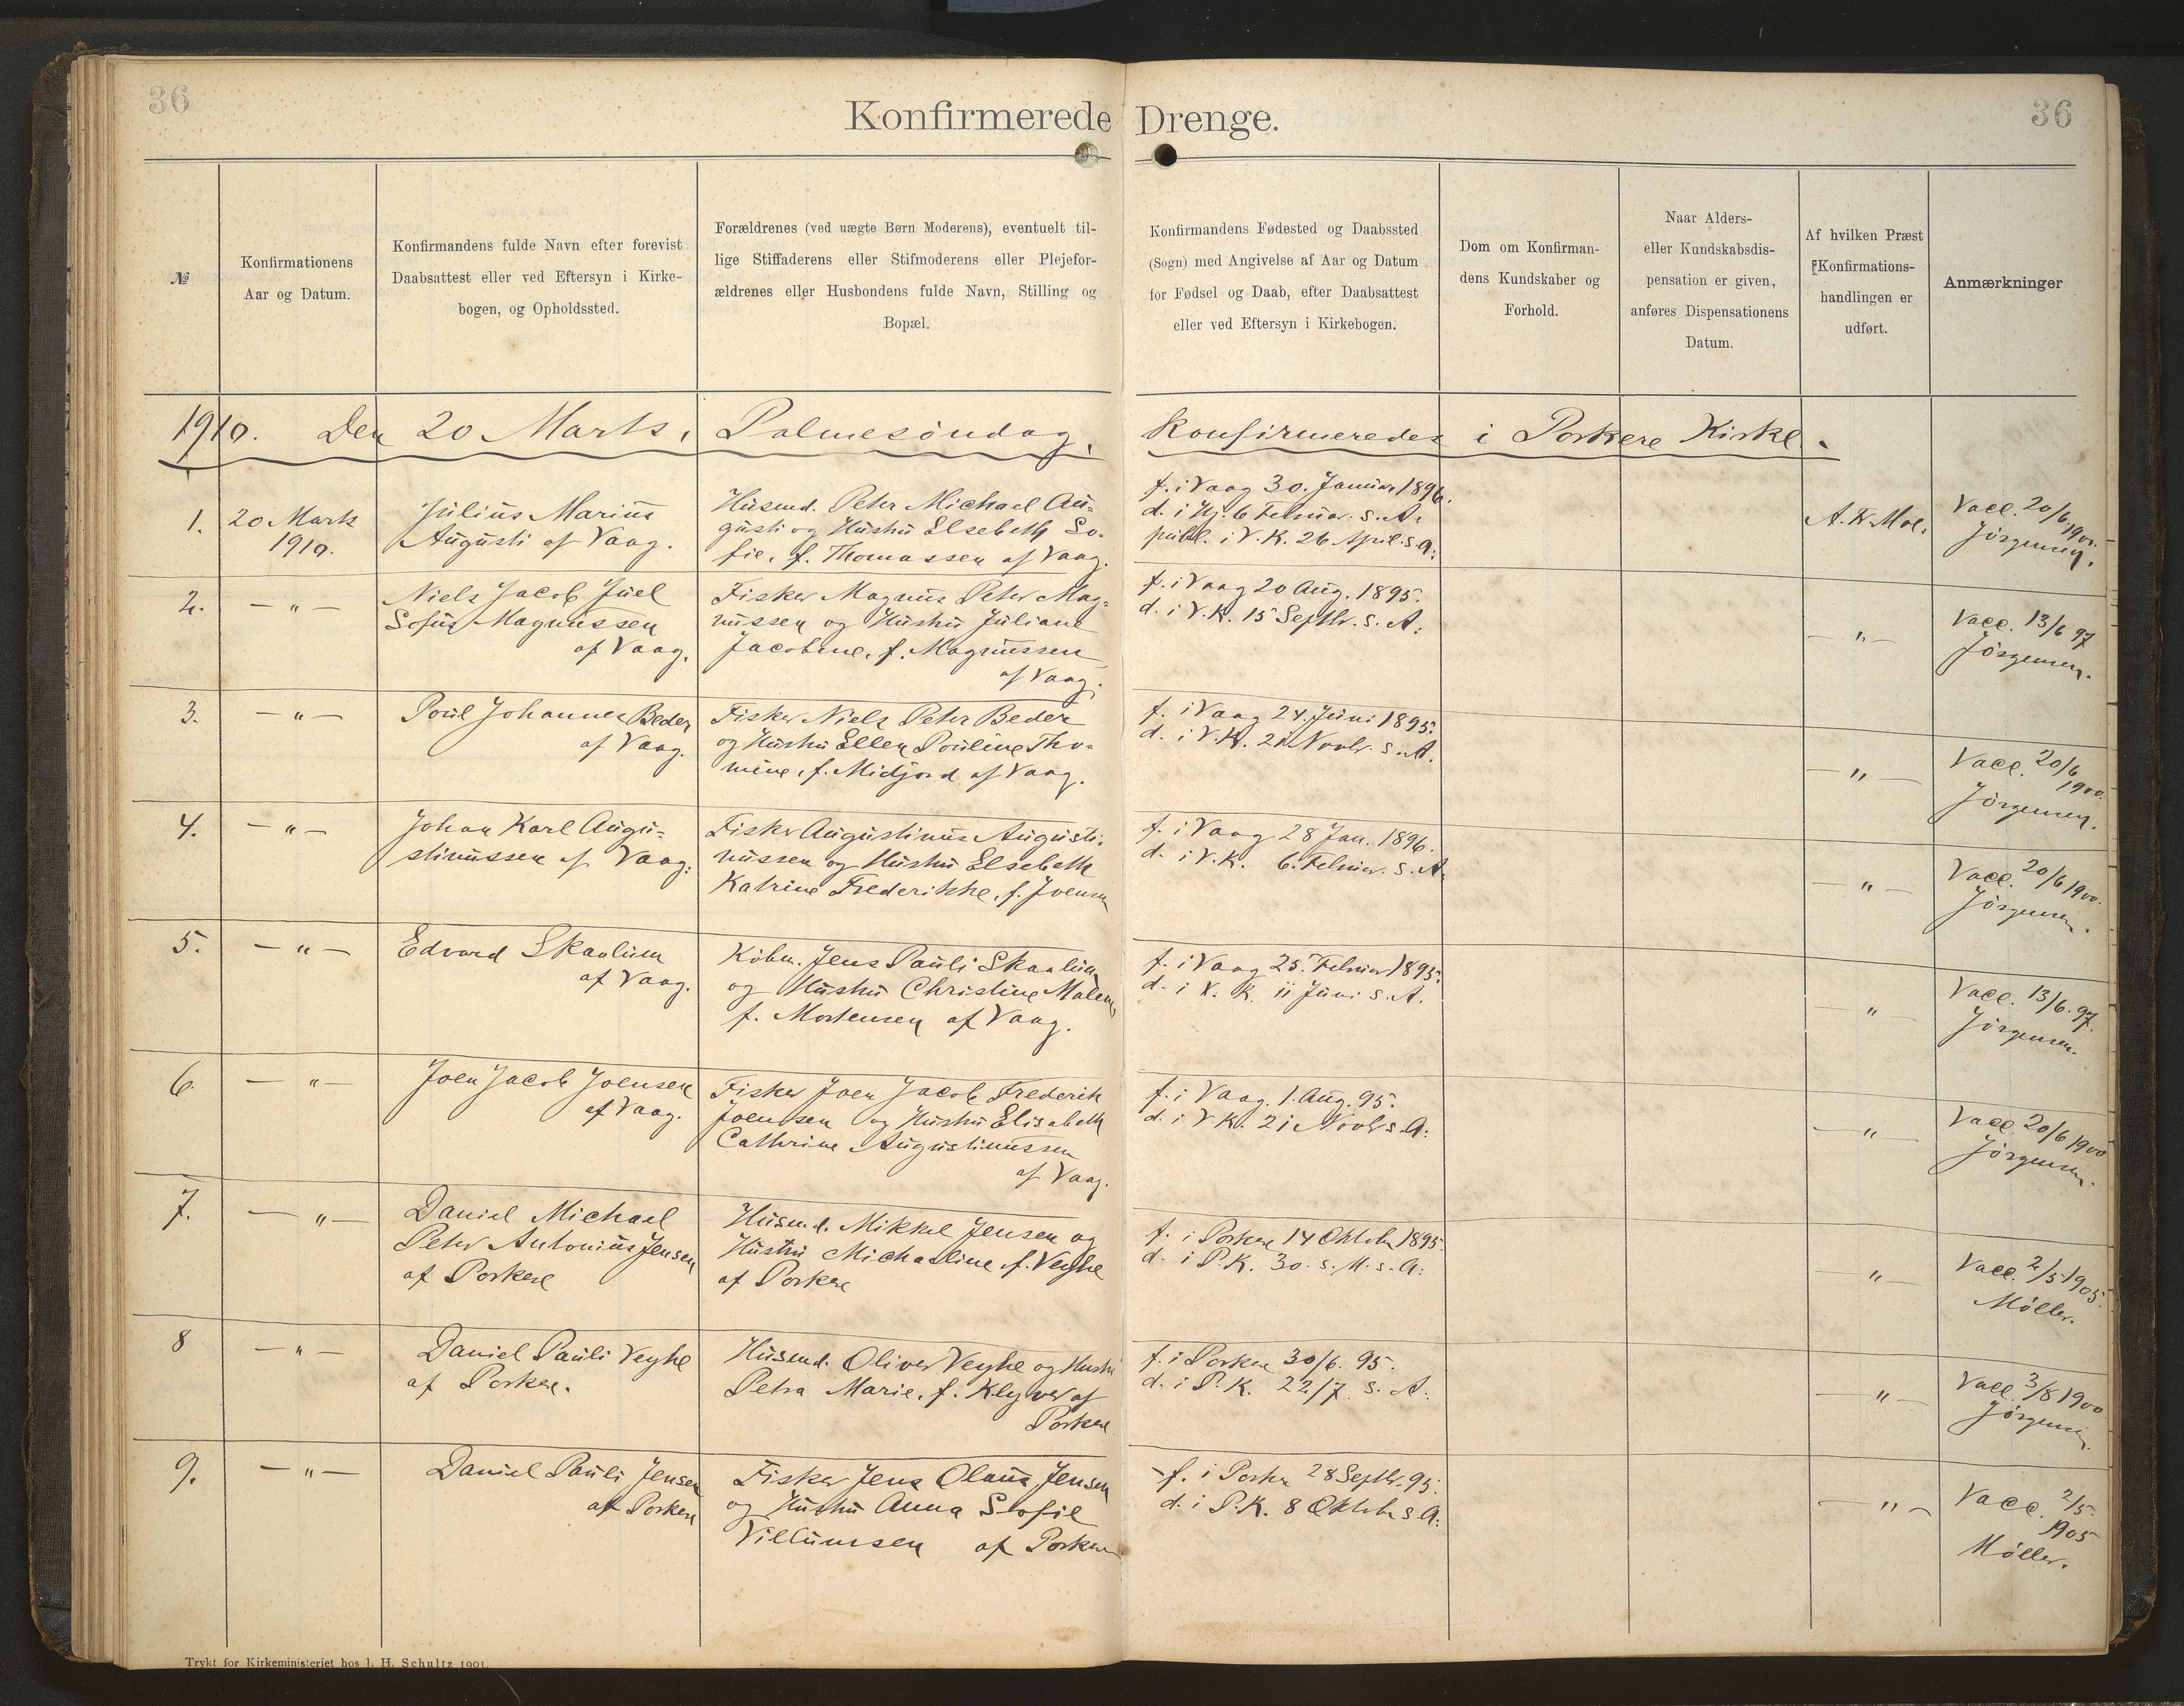 36
36
Konfirmerede Drenge.
№
Konfirmationens
Aar og Datum.
Konfirmandens fulde Navn efter forevist
Daabsattest eller ved Eftersyn i Kirke-
bogen, og Opholdssted.
Forældrenes (ved uægte Børn Moderens), eventuelt til-
lige Stiffaderens eller Stifmoderens eller Plejefor-
ældrenes eller Husbondens fulde Navn, Stilling og
Bopæl.
Konfirmandens Fødested og Daabssted
(Sogn) med Angivelse af Aar og Datum
for Fødsel og Daab, efter Daabsattest
eller ved Eftersyn i Kirkebogen.
Dom om Konfirman-
dens Kundskaber og
Forhold.
Naar Alders-
eller Kundskabsdis-
pensation er given,
anføres Dispensationens
Datum.
Af hvilken Præst
Konfirmations-
handlingen er
udført.
Anmærkninger
1910. Den 20 Marts, Palmesöndag, Konfirmeredes i Porkere Kirke.
1.
20 Marts
1910.
Julius Marius
Augusti af Vaag.
Husmd. Peter Michael Au=
gusti og Hustru Elsebeth So-
fie, f. Thomassen af Vaag.
f. i Vaag 30. Januar 1896.
d. i Hj. 6 Februar. s. A.
publ. i V. K. 26 April s. A.
A. K. Mol.
Vacc. 20/6 1900.
Jörgensen.
2.
— " —
Niels Jacob Juel
Sofus Magnussen
af Vaag.
Fisker Magnus Peter Mag=
nussen og Hustru Juliane
Jacobine, f. Magnussen
af Vaag.
f. i Vaag 20 Aug. 1895.
d. i V. K. 15 Septbr. s. A.
— " —
Vacc. 13/6 97
Jörgensen.
3.
— " —
Poul Johannes Beder
af Vaag.
Fisker Niels Peter Beder
og Hustru Ellen Pouline Tho-
mine, f. Midjord af Vaag.
f. i Vaag 24. Juni 1895.
d. i V. K. 21 Novbr. s. A.
— " —
Vacc. 20/6
1900.
Jörgensen.
4.
— " —
Johan Karl Augu=
stinussen af Vaag.
Fisker Augustinus Augusti-
nussen og Hustru Elsebeth
Katrine Frederikke, f. Joensen
f. i Vaag 28 Jan. 1896.
d. i V. K. 6. Februar. s. A.
— " —
Vacc. 20/6 1900.
Jörgensen.
5.
— " —
Edvard Skaalum
af Vaag.
Köbm. Jens Pauli Skaalum
og Hustru Christine Malene,
f. Mortensen af Vaag.
f. i Vaag 25. Februar 1895.
d. i V. K. 11 Juni s. A.
— " —
Vacc. 13/6. 97.
Jörgensen.
6.
— " —
Joen Jacob Joensen
af Vaag.
Fisker Joen Jacob Frederik
Joensen og Hustru Elisabeth
Cathrine Augustinussen
af Vaag.
f. i Vaag. 1. Aug. 95.
d. i V. K. 21 Novbr s. A.
— " —
Vacc. 20/6 1900
Jörgensen.
7.
— " —
Daniel Michael
Peter Antonius Jensen
af Porkere
Husmd. Mikkel Jensen og
Hustru Michaeline f. Veyhe
af Porkere
f. i Porkere 14 Oktober 1895.
d. i P. K. 30. s. M. s. A.
— " —
Vacc. 2/5 1905.
Möller.
8
— " —
Daniel Pauli Veyhe
af Porkere.
Husmd. Oliver Veyhe og Hustru
Petra Marie, f. Klyver af
Porkere
f. i Porkere 30/6. 95.
d. i P. K. 22/7. s. A.
— " —
Vacc. 3/8 1900
Jörgensen.
9.
— " —
Daniel Pauli Jensen
af Porkere
Fisker Jens Olaus Jensen
og Hustru Anna Sofie
Villumsen af Porkere
f. i Porkere 28 Septbr. 95.
d. i P. K. 8 Oktober s. A.
— " —
Vacc. 2/5.
1905
Möller.
Trykt for Kirkeministeriet hos J. H. Schultz 1901.